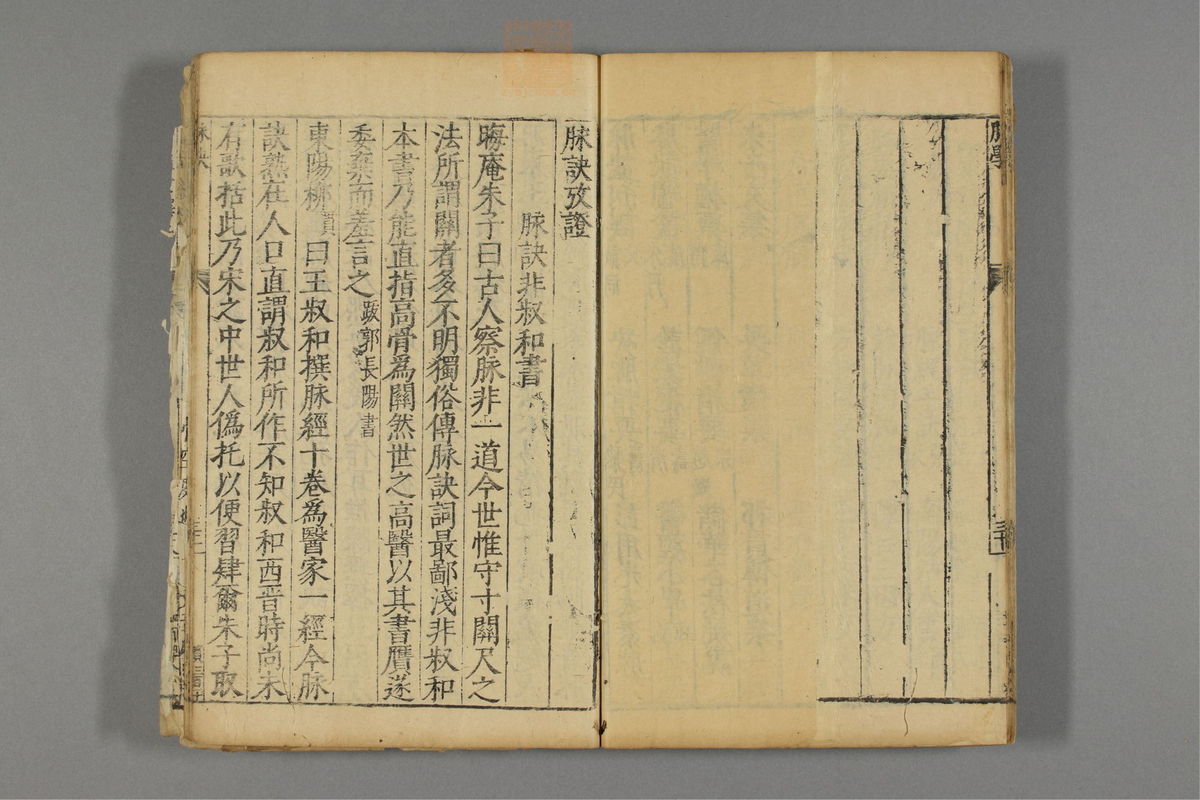 脉學
脉訣攷證
脉訣非叔和書
晦庵朱子曰古人察脉非一道今世惟守寸關尺之
法所謂關者多不明獨俗傳脉訣詞最鄙淺非叔和
本書乃能直指高骨爲關然世之高醫以其書贋遂
委棄而羞言之跋郭長陽書
東陽栁貫曰王叔和撰脉經十卷爲醫家一經今脉
訣熟在人口直謂叔和所作不知叔和西晋時尚未
有歌括此乃宋之中世人僞托以便習肆爾朱子取
脉訣